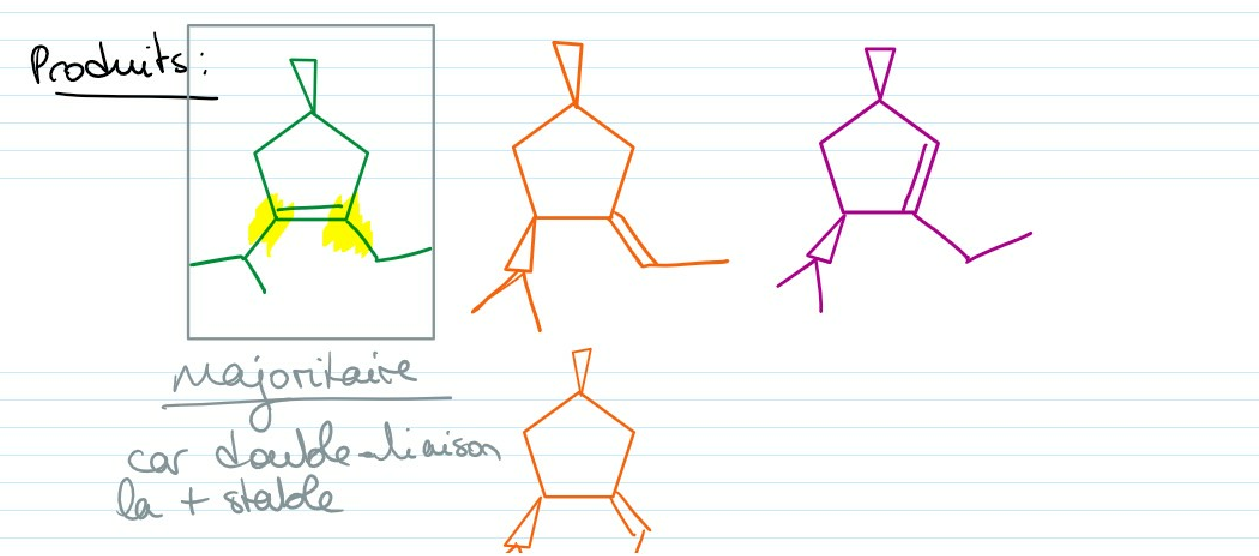 Produits :
Majoritaire
car double-liaison
la + stable